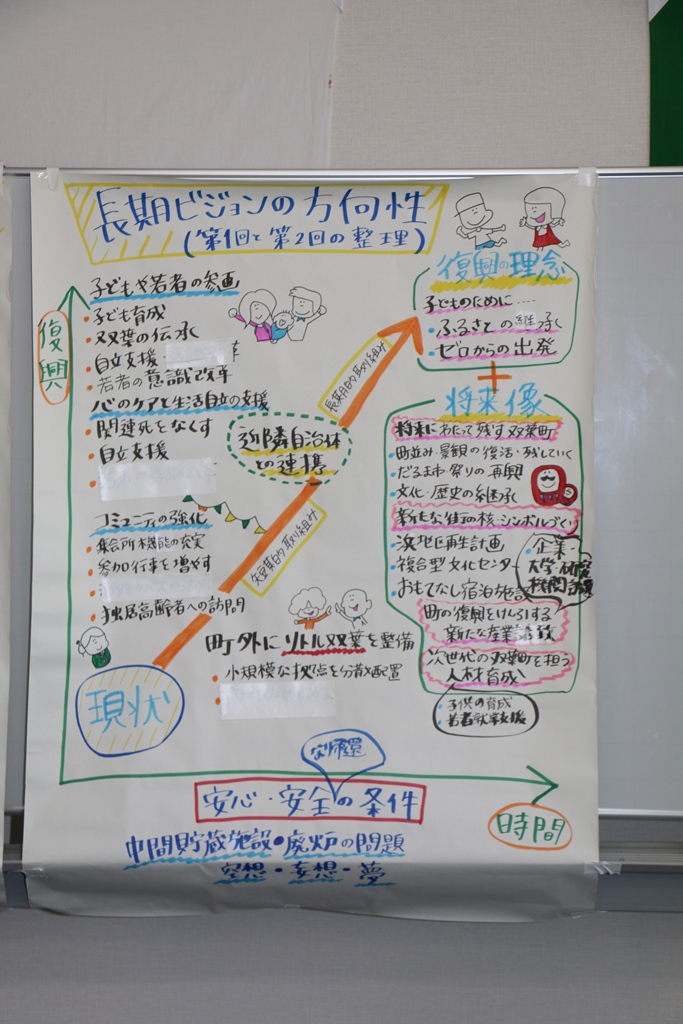 長期ビジョンの方向性
(第1回と第2回の整理)
復興
子どもや若者の参画
子ども育成
双葉の伝承
自立支援
若者の意識改革
心のケアと生活自立の支援
関連死をなくす
自立支援
コミュニティの強化
集会所機能の充実
参加行事を増やす
独居高齢者への訪問
現状
短期的取り組み
近隣自治体
との連携
長期的取り組み
町外にリトル双葉を整備
小規模な拠点を分散配置
復興の理念
子どものために……
ふるさとの継承
ゼロからの出発
+
将来像
将来にわたって残す双葉町
町並み・景観の復活・残していく
だるま市・祭りの再興
文化・歴史の継承
新たな街の核・シンボルづくり
浜地区再生計画
複合型文化センター
おもてなし宿泊施設
企業・
大学・研究
機関
町の復興をけん引する
新たな産業
次世代の双葉町を担う
人材育成
子供の育成
若者就学支援
帰還
安心・安全の条件
時間
中間貯蔵施設・廃炉の問題
空想・妄想・夢